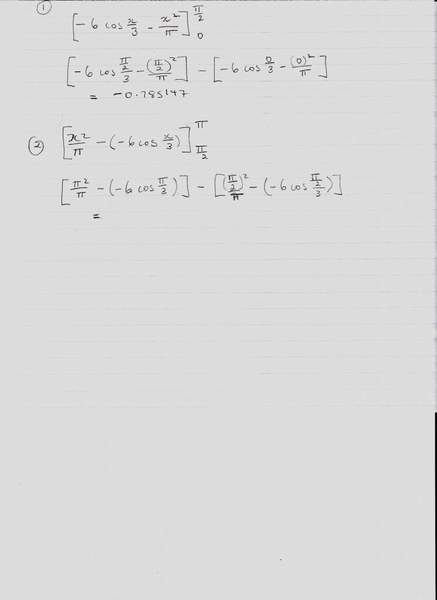 ① [-6 cos x/3 - x²/π]₀^(π/2)
[-6 cos (π/2)/3 - (π/2)²/π] - [-6 cos 0/3 - (0)²/π]
= -0.785147
② [x²/π - (-6 cos x/3)]_(π/2)^π
[π²/π - (-6 cos π/3)] - [(π/2)²/π - (-6 cos (π/2)/3)]
=